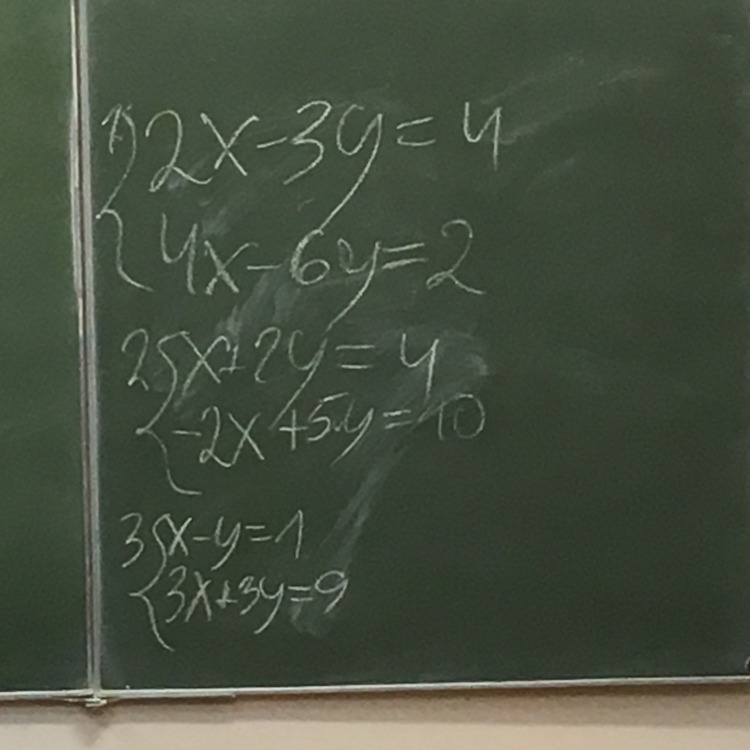 1) { 2x-3y=4
4x-6y=2
2) { x+2y=4
-2x+5y=10
3) { x-y=1
3x+3y=9